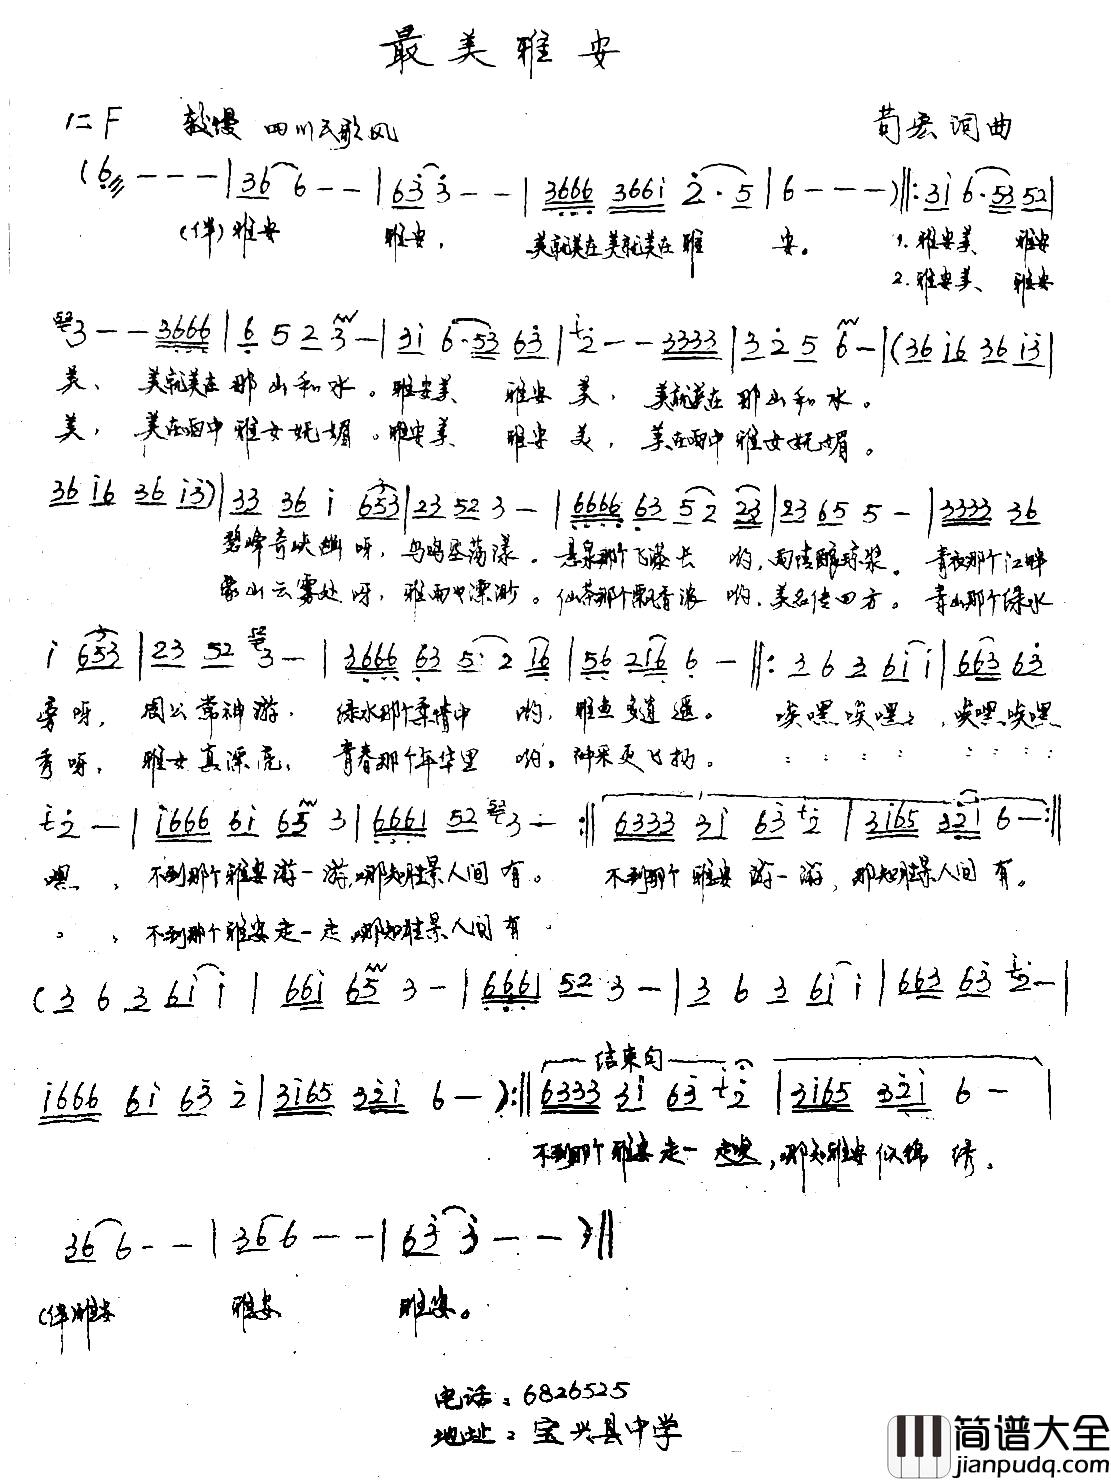 最美雅安
1=F 较慢 四川民歌风 苟宏词曲
(6 - - - | 36 6 - - | 63 3 - - | 3666 366i 2·5 | 6 - - - ) ‖: 3i 6·53 52 |
(伴)雅安 雅安, 美就美在美就美在雅安。 1.雅安美、雅安
2.雅安美、雅安
3 - - 3666 | 6 5 2 3 - | 3i 6·53 63 | 2 - - 3333 | 3 2 5 6 - | (36 i6 36 i3 |
美、美就美在那山和水。雅安美 雅安美, 美就美在那山和水。
美, 美在雨中雅女妩媚。雅安美 雅安美, 美在雨中雅女妩媚。
36 i6 36 i3) | 33 36 i 653 | 23 52 3 - | 6666 63 5 2 23 | 23 65 5 - | 3333 36
碧峰奇峡幽呀, 鸟鸣荡漾。悬泉那个飞瀑长哟, 雨琼浆。青衣那个江畔
蒙山云雾处呀, 雅雨中漂渺。仙茶那个飘香浓哟, 美名传四方。青山那个绿水
i 653 | 23 52 3 - | 3666 63 5·2 16 | 56 216 6 - ‖: 3 6 3 6i i | 663 63
旁呀, 周公常神游, 绿水那个柔情中哟, 雅鱼多逍遥。 唉嘿唉嘿, 唉嘿唉嘿
秀呀, 雅女真漂亮, 青春那个年华里哟, 神采更飞扬。
2 - | i666 6i 65 3 | 6661 52 3 - :‖ 6333 3i 63 2 | 3i65 32i 6 - :‖
嘿, 不到那个雅安游一游, 哪知胜景人间有。 不到那个雅安游一游, 那知胜景人间有。
不到那个雅安走一走, 哪知胜景人间有
(3 6 3 6i i | 66i 65 3 - | 6661 52 3 - | 3 6 3 6i i | 663 63 2 - |
结束句
i666 6i 63 2 | 3i65 32i 6 - ):‖ 6333 3i 63 2 | 3i65 32i 6 - |
不到那个雅安走一走, 哪知雅安似锦绣。
36 6 - - | 36 6 - - | 63 3 - - ‖
(伴)雅安 雅安 雅安。
电话:6826525
地址:宝兴县中学
简谱大全
jianpudq.com